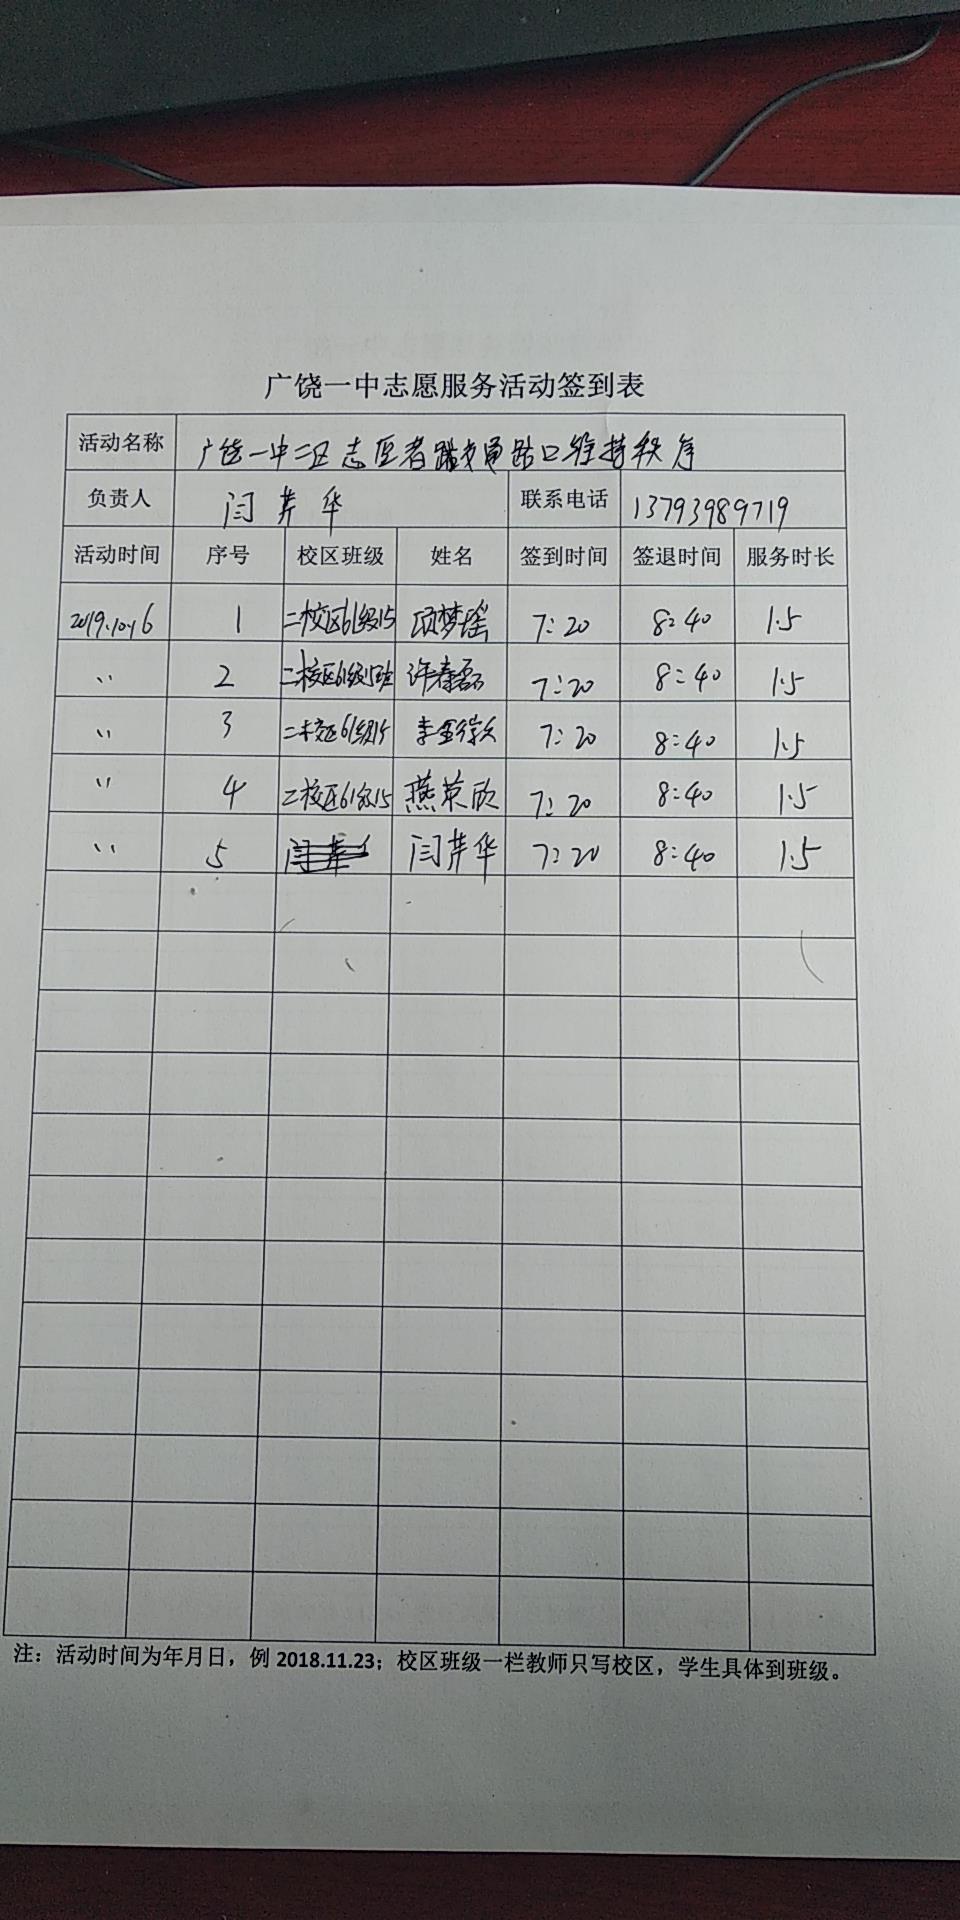 广饶一中志愿服务活动签到表
活动名称 广饶一中二区志愿者 路口维持秩序
负责人 闫芹华 联系电话 13793989719
活动时间 序号 校区班级 姓名 签到时间 签退时间 服务时长
2019.10.16 1 二校区61级15 项梦瑶 7:20 8:40 1.5
〃 2 二校区61级15班 许春磊 7:20 8:40 1.5
〃 3 二校区61级15 李金 7:20 8:40 1.5
〃 4 二校区61级15 燕荣欣 7:20 8:40 1.5
〃 5 闫芹华 7:20 8:40 1.5
注：活动时间为年月日，例 2018.11.23；校区班级一栏教师只写校区，学生具体到班级。